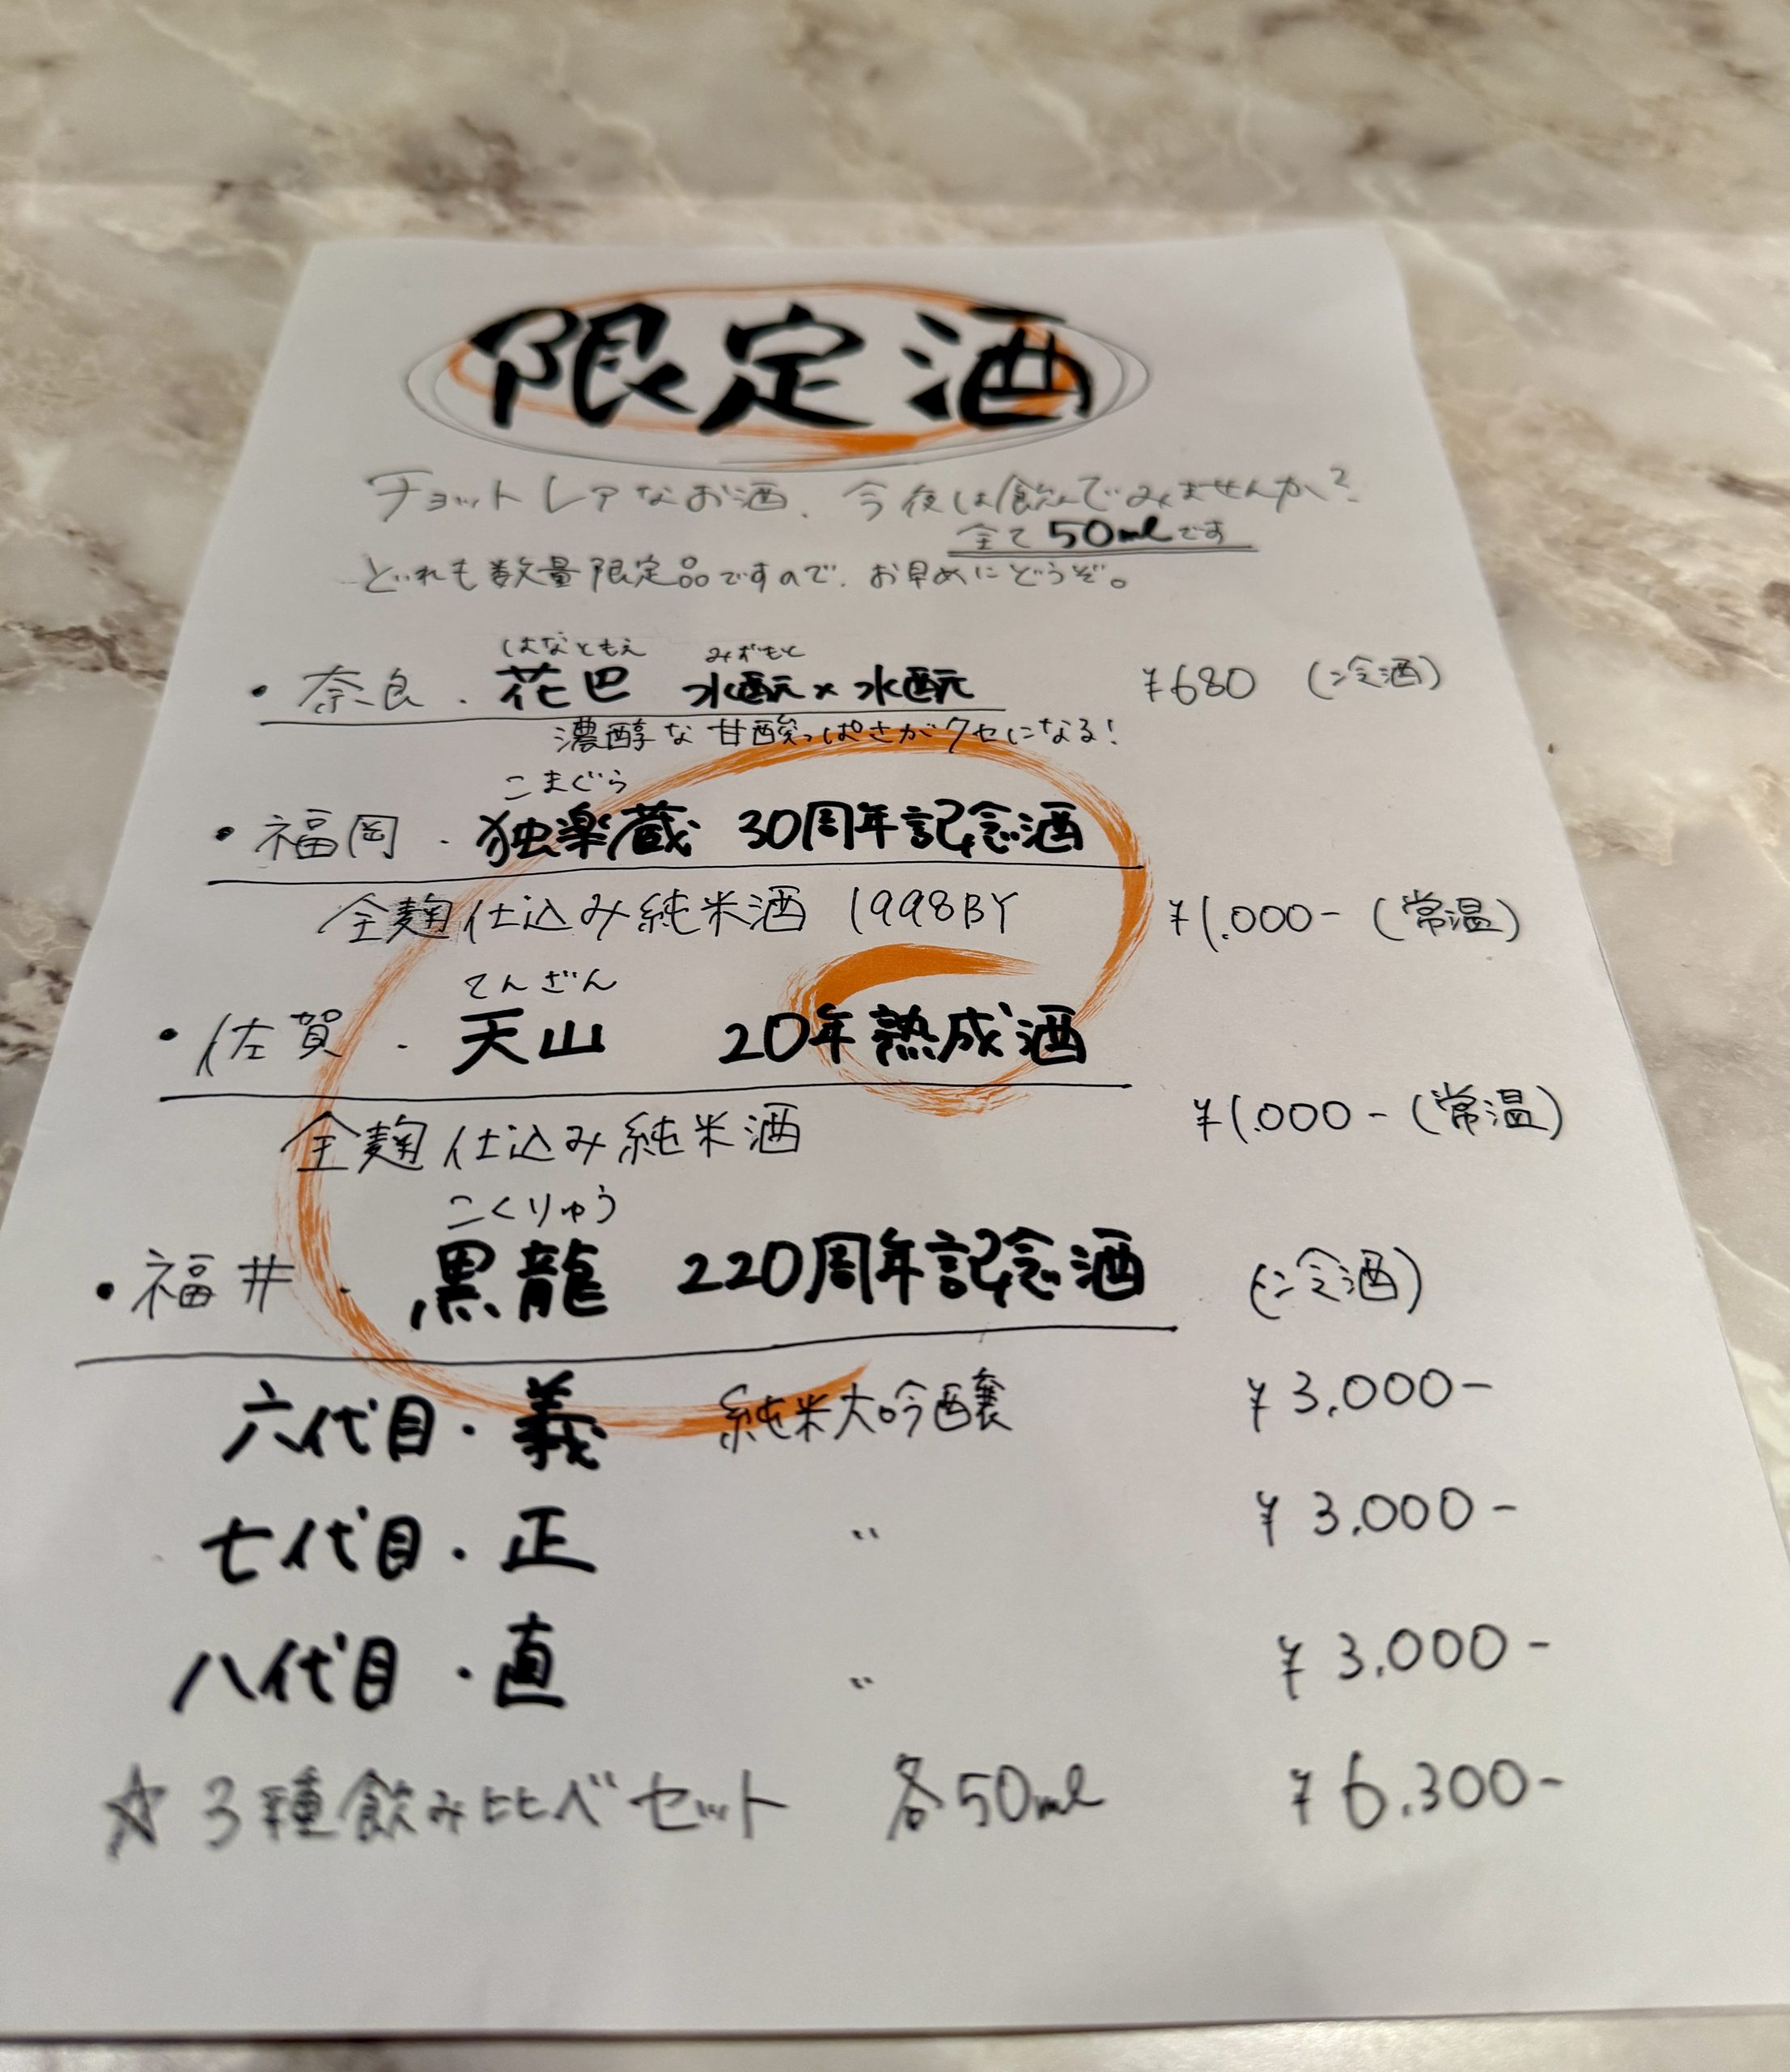 限定酒
チョットレアなお酒、今夜は飲んでみませんか?
全て50mlです
どれも数量限定品ですので、お早めにどうぞ。
はなともえ みずもと
・奈良・花巴 水酛×水酛 ¥680 (冷酒)
濃醇な甘酸っぱさがクセになる!
こまぐら
・福岡・独楽蔵 30周年記念酒
全麹仕込み純米酒 1998BY ¥1.000- (常温)
てんざん
・佐賀・天山 20年熟成酒
全麹仕込み純米酒 ¥1.000- (常温)
こくりゅう
・福井・黒龍 220周年記念酒 (冷酒)
六代目・義 純米大吟醸 ¥3.000-
七代目・正 〃 ¥3.000-
八代目・直 〃 ¥3.000-
☆3種飲み比べセット 各50ml ¥6.300-